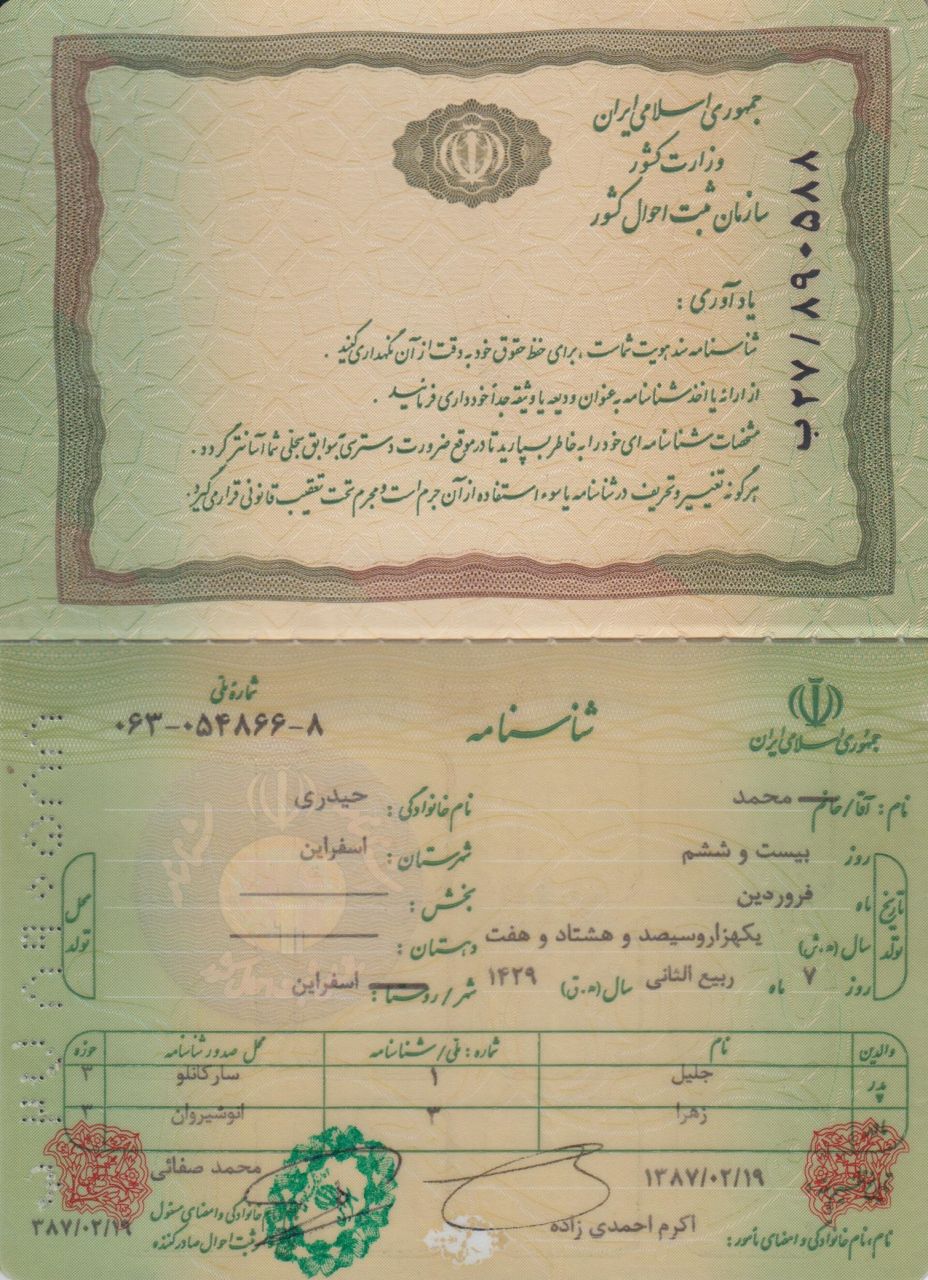 جمهوری اسلامی ایران
وزارت کشور
سازمان ثبت احوال کشور
ب۲۷/۸۹۰۵۸۸
یادآوری :
شناسنامه سند هویت شماست ، برای حفظ حقوق خود به دقت از آن نگهداری کنید .
از ارائه یا اخذ شناسنامه به عنوان ودیعه یا وثیقه جداً خودداری فرمائید .
مشخصات شناسنامه ای خود را به خاطر بسپارید تا در موقع ضرورت دسترسی به سوابق سجلی شما آسانتر گردد .
هرگونه تغییر و تحریف در شناسنامه یا سوء استفاده از آن جرم است و مجرم تحت تعقیب قانونی قرار می‌گیرد .
جمهوری اسلامی ایران
شناسنامه
شماره ملی
۰۶۳-۰۵۴۸۶۶-۸
نام : آقا/خانم محمد نام خانوادگی : حیدری
تاریخ تولد روز بیست و ششم محل تولد شهرستان : اسفراین
ماه فروردین بخش :
سال (ه.ش) یکهزاروسیصد و هشتاد و هفت دهستان :
روز ۷ ماه ربیع الثانی سال (ه.ق) ۱۴۲۹ شهر/روستا : اسفراین
والدین نام شماره : ملی/شناسنامه محل صدور شناسنامه حوزه
پدر جلیل ۱ سارکانلو ۳
مادر زهرا ۳ انوشیروان ۳
۱۳۸۷/۰۲/۱۹ محمد صفائی
اکرم احمدی زاده
نام ، نام خانوادگی و امضای مأمور :
نام خانوادگی و امضای مسئول
ثبت احوال صادرکننده
۳۸۷/۰۲/۱۹